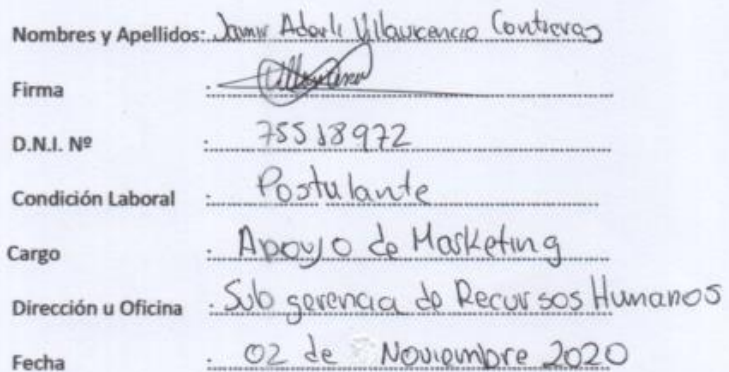 Nombres y Apellidos: Jamir Aderli Villavicencio Contreras
Firma :
D.N.I. Nº : 75518972
Condición Laboral : Postulante
Cargo : Apoyo de Marketing
Dirección u Oficina : Sub gerencia de Recursos Humanos
Fecha : 02 de Noviembre 2020